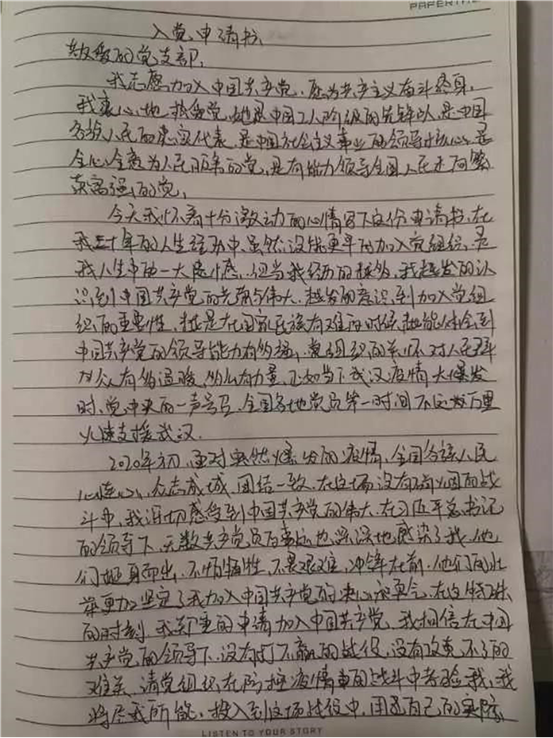 PAPERTA
入党申请书
敬爱的党支部:
我志愿加入中国共产党,愿为共产主义奋斗终身,
我衷心地热爱党,她是中国工人阶级的先锋队,是中国
各族人民的忠实代表,是中国社会主义事业的领导核心,是
全心全意为人民服务的党,是有能力领导全国人民走向繁
荣富强的党。
今天我怀着十分激动的心情写下这份申请书,在
我三十年的人生经历中,虽然没能更早的加入党组织,是
我人生中的一大遗憾,但当我经历的越多,我越发的认
识到中国共产党的光荣与伟大,越发的意识到加入党组
织的重要性,越是在国家民族有难的时候,越能体会到
中国共产党的领导能力有多强,党组织的关怀对人民群
众有多温暖,多么有力量,正如当下武汉疫情大爆发
时,党中央的一声号令,全国各地党员第一时间不远数万里
火速支援武汉。
2020年初,面对突然爆发的疫情,全国各族人民
心连心,众志成城,团结一致,在这场没有硝烟的战
斗中,我深切感受到中国共产党的伟大,在习近平总书记
的领导下,无数共产党员的事迹也深深地感染了我,他
们挺身而出,不怕牺牲,不畏艰难,冲锋在前,他们的壮
举更加坚定了我加入中国共产党的决心和勇气,在这特殊
的时刻,我郑重的申请加入中国共产党,我相信在中国
共产党的领导下,没有打不赢的战役,没有攻克不了的
难关,请党组织在防控疫情的战斗中考验我,我
将尽我所能,投入到这场战役中,用我自己的实际
LISTEN TO YOUR STORY